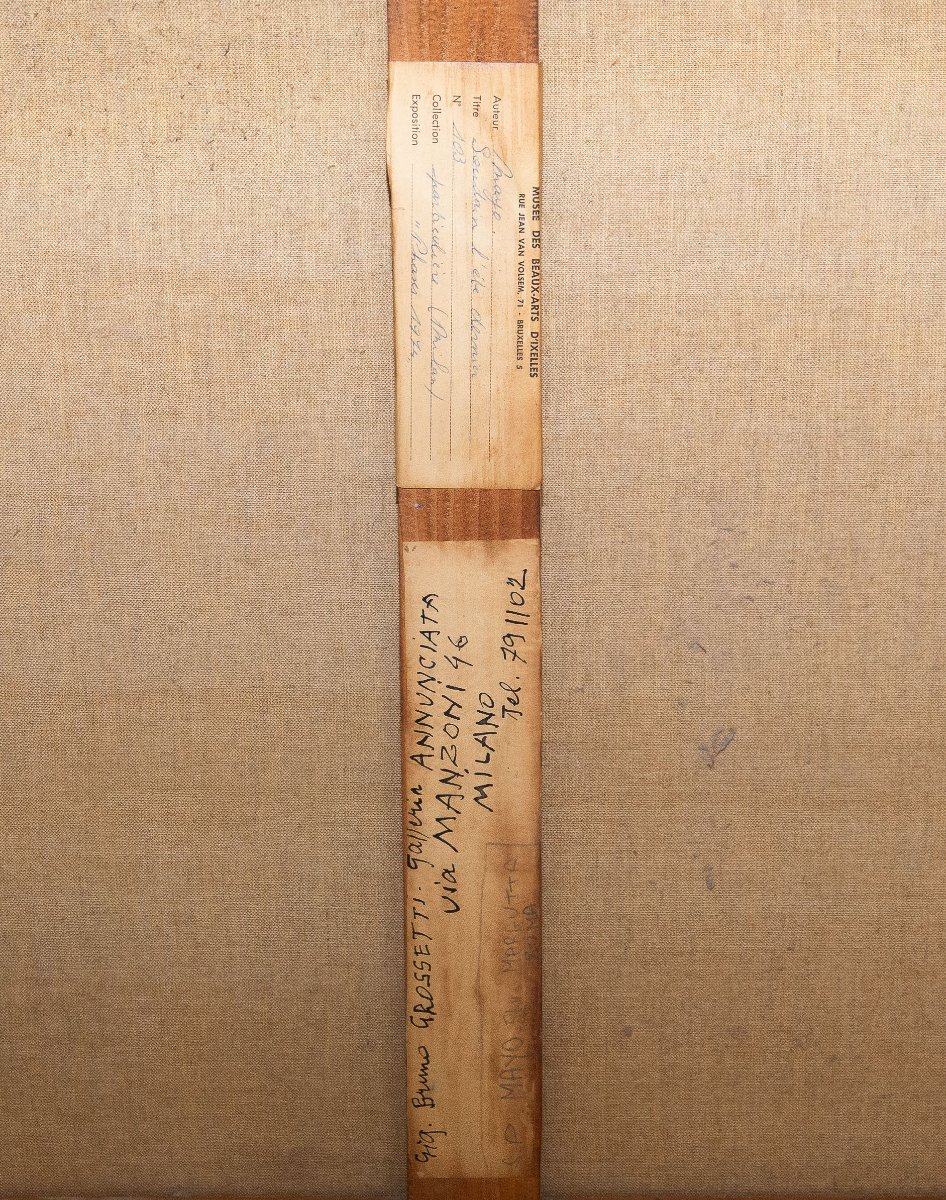 MUSEE DES BEAUX-ARTS D'IXELLES
RUE JEAN VAN VOLSEM, 71 - BRUXELLES 5
Auteur Mayo.
Titre Soudain l'été dernier
N° 103
Collection particulière (Milan)
Exposition "Phases 1974
Sig. Bruno GROSSETTI. Galleria ANNUNCIATA
via MANZONI 46
MILANO
Tel. 791102
MAYO MARGUTTA
ROMA